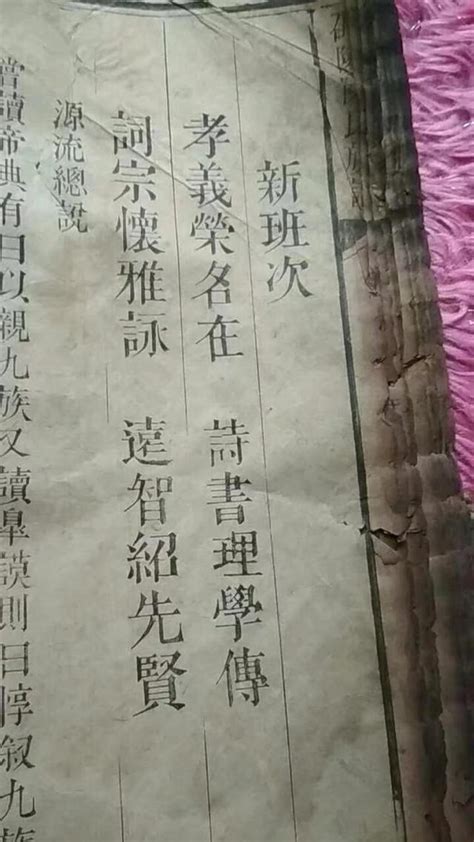 新班次
孝義榮名在 詩書理學傳
詞宗懷雅詠 遠智紹先賢
源流總說
嘗讀帝典有曰以親九族又讀臯謨則曰惇叙九族